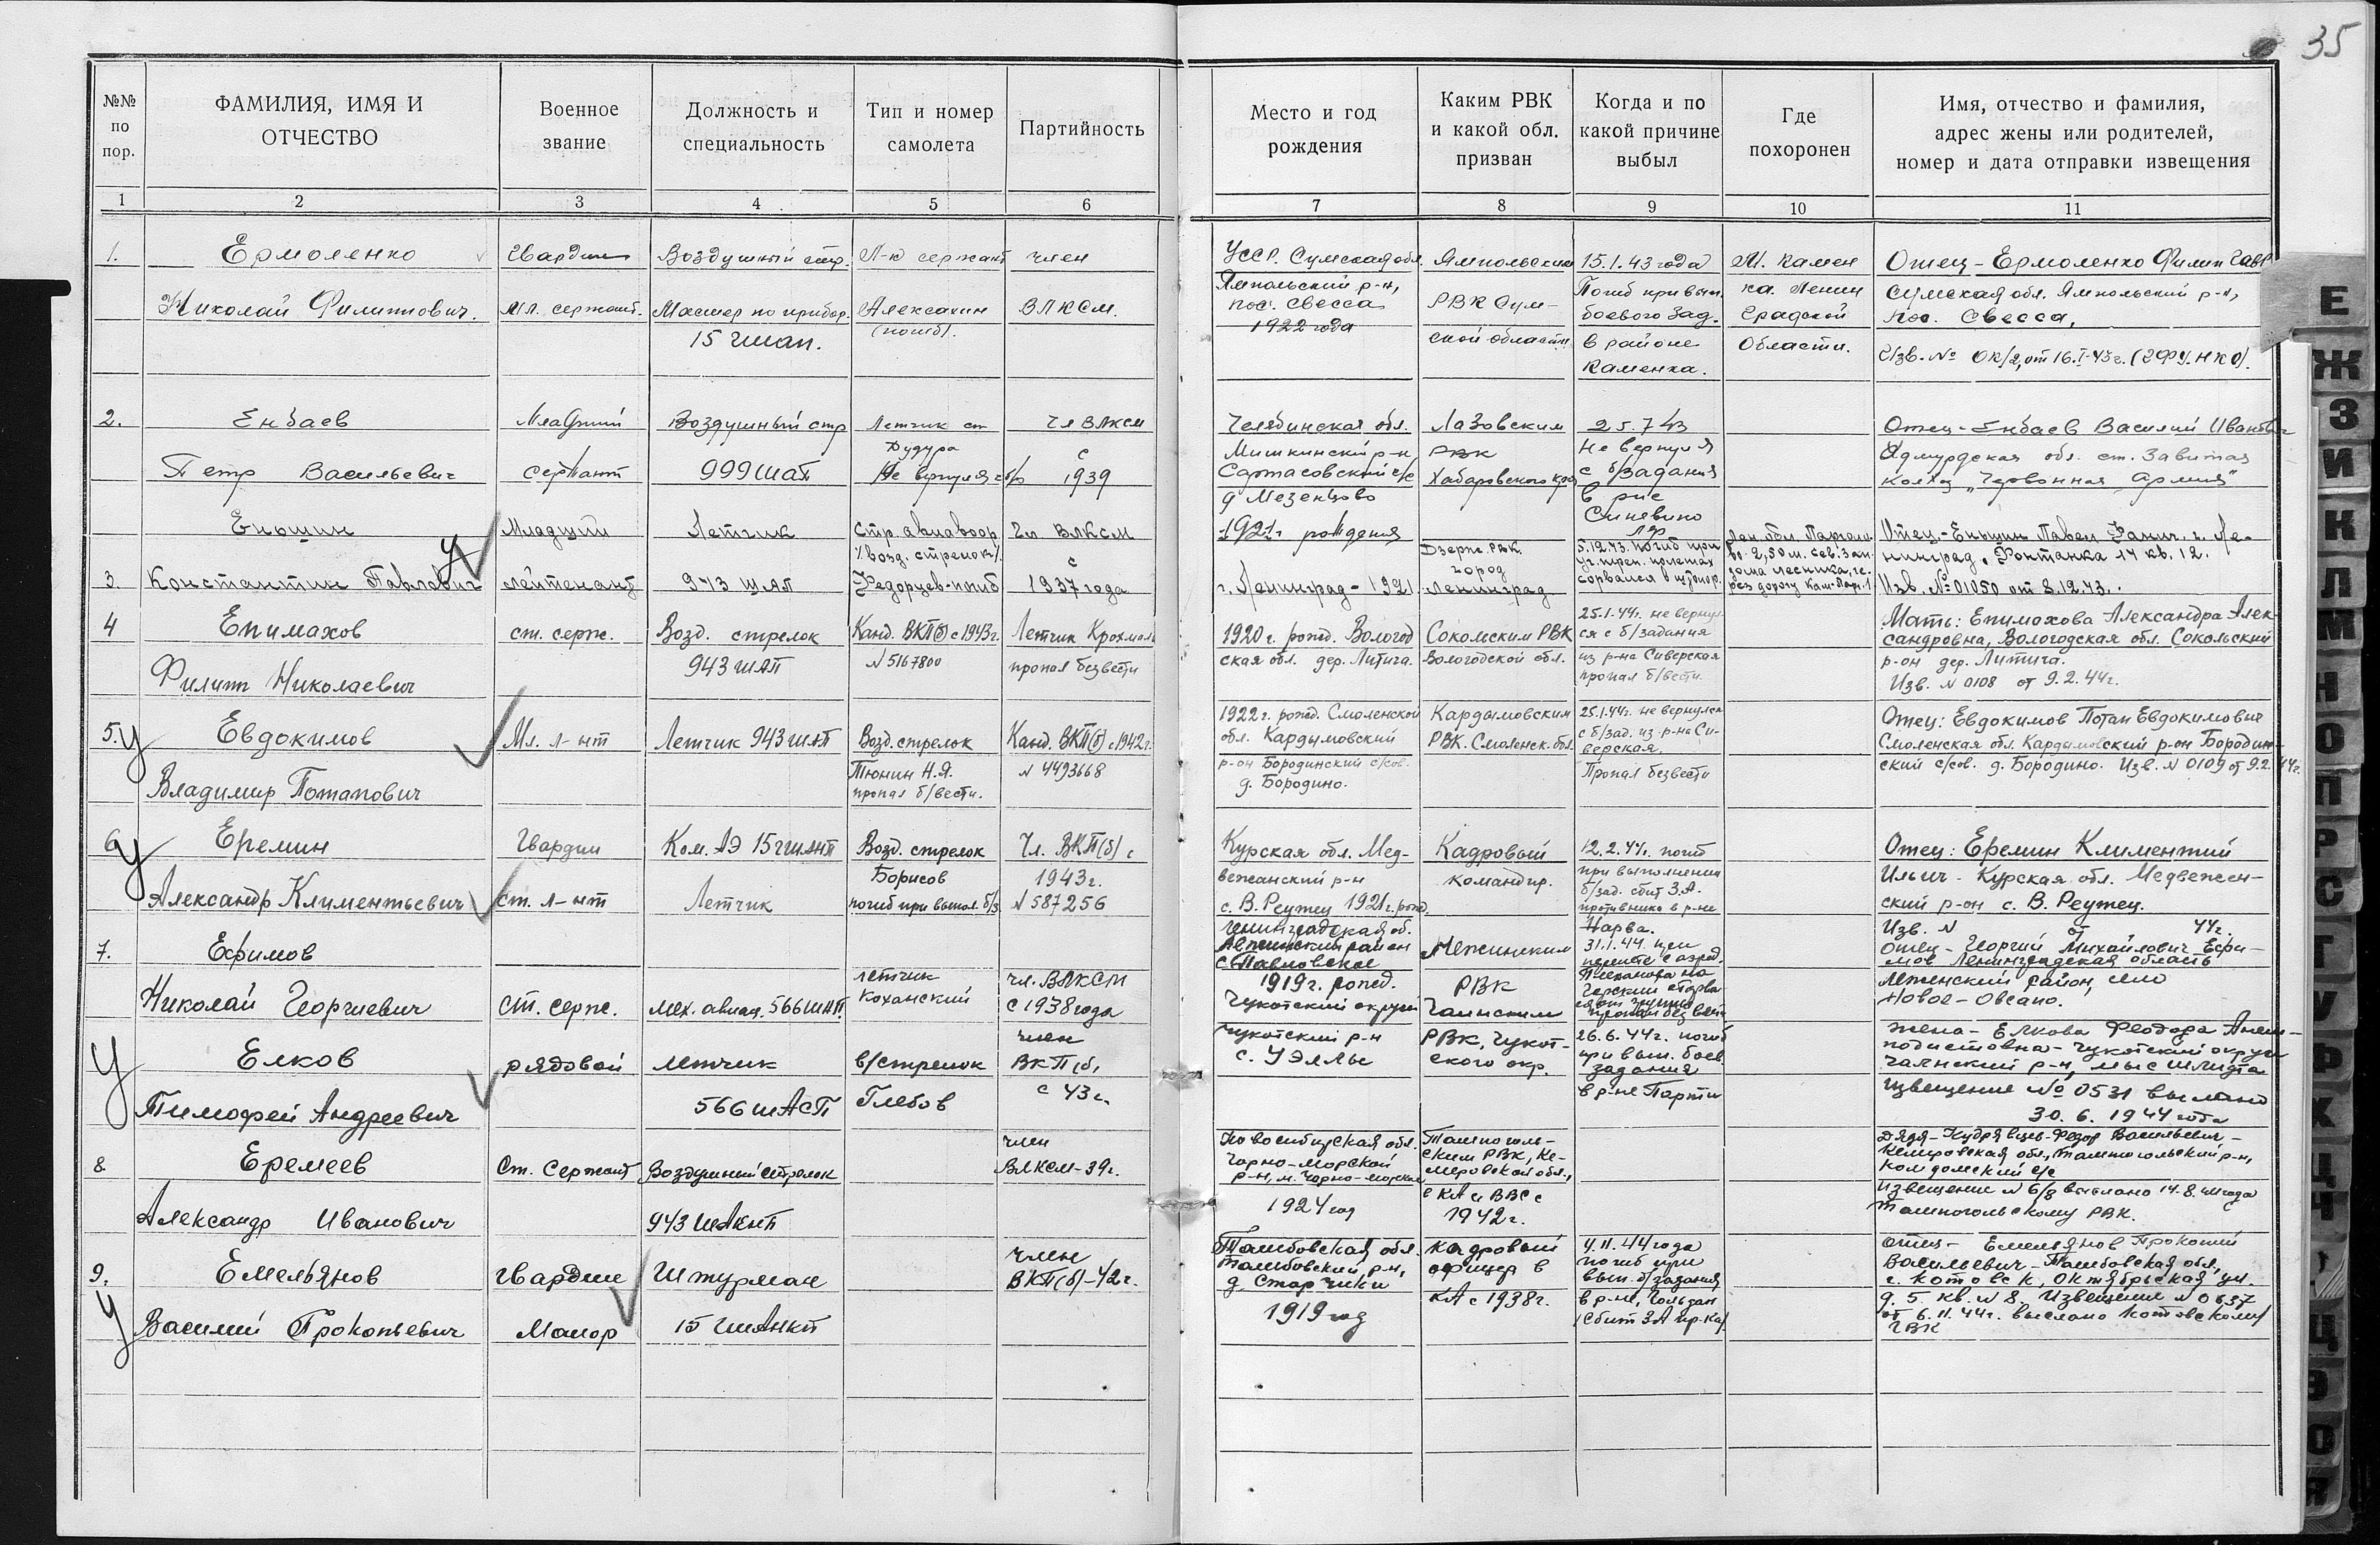 35
№№ по пор.
ФАМИЛИЯ, ИМЯ И ОТЧЕСТВО
Военное звание
Должность и специальность
Тип и номер самолета
Партийность
Место и год рождения
Каким РВК и какой обл. призван
Когда и по какой причине выбыл
Где похоронен
Имя, отчество и фамилия, адрес жены или родителей, номер и дата отправки извещения
1 2 3 4 5 6 7 8 9 10 11
1.
Ермоленко
Николай Филиппович.
Гвардии
Мл. сержант.
Воздушный стр.
Мастер по прибор.
15 гшап.
Л-к сержант
Алексахин
(погиб).
член
ВЛКСМ.
УССР. Сумская обл.
Ямпольский р-н,
пос. Свесса
1922 года
Ямпольским
РВК Сум-
ской области
15.1.43 года
Погиб при вып.
боевого зад.
в районе
Каменка.
М. Камен
ка. Ленин
градской
Области.
Отец - Ермоленко Филип Гавр
Сумская обл. Ямпольский р-н,
пос. Свесса,
Изв. № ОК/2, от 16.I-43г. (2ФУ. НКО).
2.
Енбаев
Петр Васильевич
Младший
сержант
Воздушный стр
999 ШАП
Летчик ст
Дудура
Не вернулся с б/з
Чл ВЛКСМ
с
1939
Челябинская обл.
Мишкинский р-н
Сартасовский с/с
д Мезенцово
1921г рождения
Лазовским
РВК
Хабаровского края
25.7 43
Не вернулся
с б/задания
в р-не
Синявино
ЛФ
Отец - Енбаев Василий Иванович
Амурская обл. ст. Завитая
колхоз „Червонная Армия"
3
Еньшин
Константин Павлович
У
Младший
лейтенант
Летчик
943 ШАП
Стр. авиавоор
/Возд. стрелок/.
Федорцев-погиб
Чл ВЛКСМ
с
1937 года
г. Ленинград - 1921
Дзерж. РВК.
город
Ленинград
5.12.43. погиб при
уч. трен. полетах
сорвался в штопор.
Лен. обл. Парголо-
во 2,50м. сев. зап.
дома лесника, че-
рез дорогу
Отец - Еньшин Павел г. Ле-
нинград, Фонтанка 14 кв. 12.
Изв. № 01050 от 8.12.43.
4
Епимахов
Филипп Николаевич
ст. серж.
Возд. стрелок
943 ШАП
Канд. ВКП(б) с 1943г.
№ 5167800
Летчик Крохмаль
пропал без вести
1920г. рожд. Вологод
ская обл. дер. Литига.
Сокольским РВК
Вологодской обл.
25.1.44г. не вернул-
ся с б/задания
из р-на Сиверская
пропал б/вести.
Мать: Епимахова Александра Алек-
сандровна, Вологодская обл. Сокольский
р-он дер. Литига.
Изв. № 0108 от 9.2.44г.
5.
У
Евдокимов
Владимир Потапович
Мл. л-нт
Летчик 943 ШАП
Возд. стрелок
Тюнин Н.Я.
пропал б/вести.
Канд. ВКП(б) с 1942г.
№ 4493668
1922г. рожд. Смоленской
обл. Кардымовский
р-он Бородинский с/сов.
д. Бородино.
Кардымовским
РВК. Смоленск. обл.
25.1.44г. не вернулся
с б/зад. из р-на Си-
верская.
Пропал безвести
Отец: Евдокимов Потап Евдокимович
Смоленская обл. Кардымовский р-он Бородин-
ский с/сов. д. Бородино. Изв. № 0109 от 9.2.44г.
6
У
Еремин
Александр Климентьевич
Гвардии
ст. л-нт
Ком. АЭ 15 гшап
Летчик
Возд. стрелок
Борисов
погиб при выпол. б/з
Чл. ВКП(б) с
1943г.
№ 587256
Курская обл. Мед-
вежанский р-н
с. В. Реутец 1921г. рожд.
Кадровый
командир.
12.2.44г. погиб
при выполнении
б/зад. сбит З.А.
противника в р-не
Нарва.
Отец: Еремин Климентий
Ильич - Курская обл. Медвежен-
ский р-он с. В. Реутец.
Изв. № от 44г.
7.
Ефимов
Николай Георгиевич
ст. серж.
мех. авиац. 566 ШАП
летчик
Коханский
чл. ВЛКСМ
с 1938 года
Ленинградская об.
район
с Павловское
1919г. рожд.
РВК
31.1.44 при
перелете с аэрод.
на
пропал без вести
отец - Георгий Михайлович Ефи-
мов Ленинградская область
район, село
Новое - Овсано.
У
Елков
Тимофей Андреевич
рядовой
летчик
566 ШАСП
в/стрелок
Глебов
член
ВКП(б)
с 43г.
Чукотский округ
Чукотский р-н
с. Уэллы
Чаинским
РВК, Чукот-
ского окр.
26.6.44г. погиб
при вып. боев
задания
в р-не Порти
жена - Елкова Феодора
Чукотский округ
р-н, мыс Шмидта
извещение № 0531 выслано
30.6.1944 года
8.
Еремеев
Александр Иванович
Ст. Сержант
Воздушный стрелок
943 ШАКНП
член
ВЛКСМ - 39г.
Новосибирская обл.
Горно-Шорской
р-н, м.
1924 год
Таштоголь-
ским РВК, Ке-
меровской обл.,
в КА и ВВС с
1942г.
Дядя - Кудрявцев Федор Васильевич -
Кемеровская обл., Таштогольский р-н,
Кондомский с/с
Извещение № 6/8 выслано 14.8.44 года
Таштогольскому РВК.
9.
У
Емельянов
Василий Прокопьевич
Гвардии
Майор
Штурман
15 гшАКНП
член
ВКП(б) - 42г.
Тамбовская обл.
Тамбовский р-н,
д. Старчики
1919 год
кадровый
офицер в
КА с 1938г.
4.II.44 года
погиб при
вып. б/задания
в р-не,
(Сбит ЗА пр-ка)
отец - Емельянов Прокопий
Васильевич - Тамбовская обл.,
г. Котовск, Октябрьская ул.
д. 5 кв. № 8, Извещение № 0637
от 6.11.44г. выслано Котовскому
ГВК
Е
Ж
З
И
К
Л
М
Н
О
П
Р
С
Т
У
Ф
Х
Ц
Ч
Щ
Э
Ю
Я